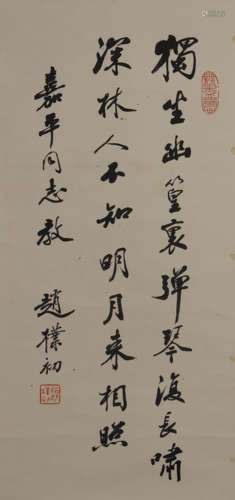 獨坐幽篁裏彈琴復長嘯
深林人不知明月來相照
嘉平同志教
趙樸初